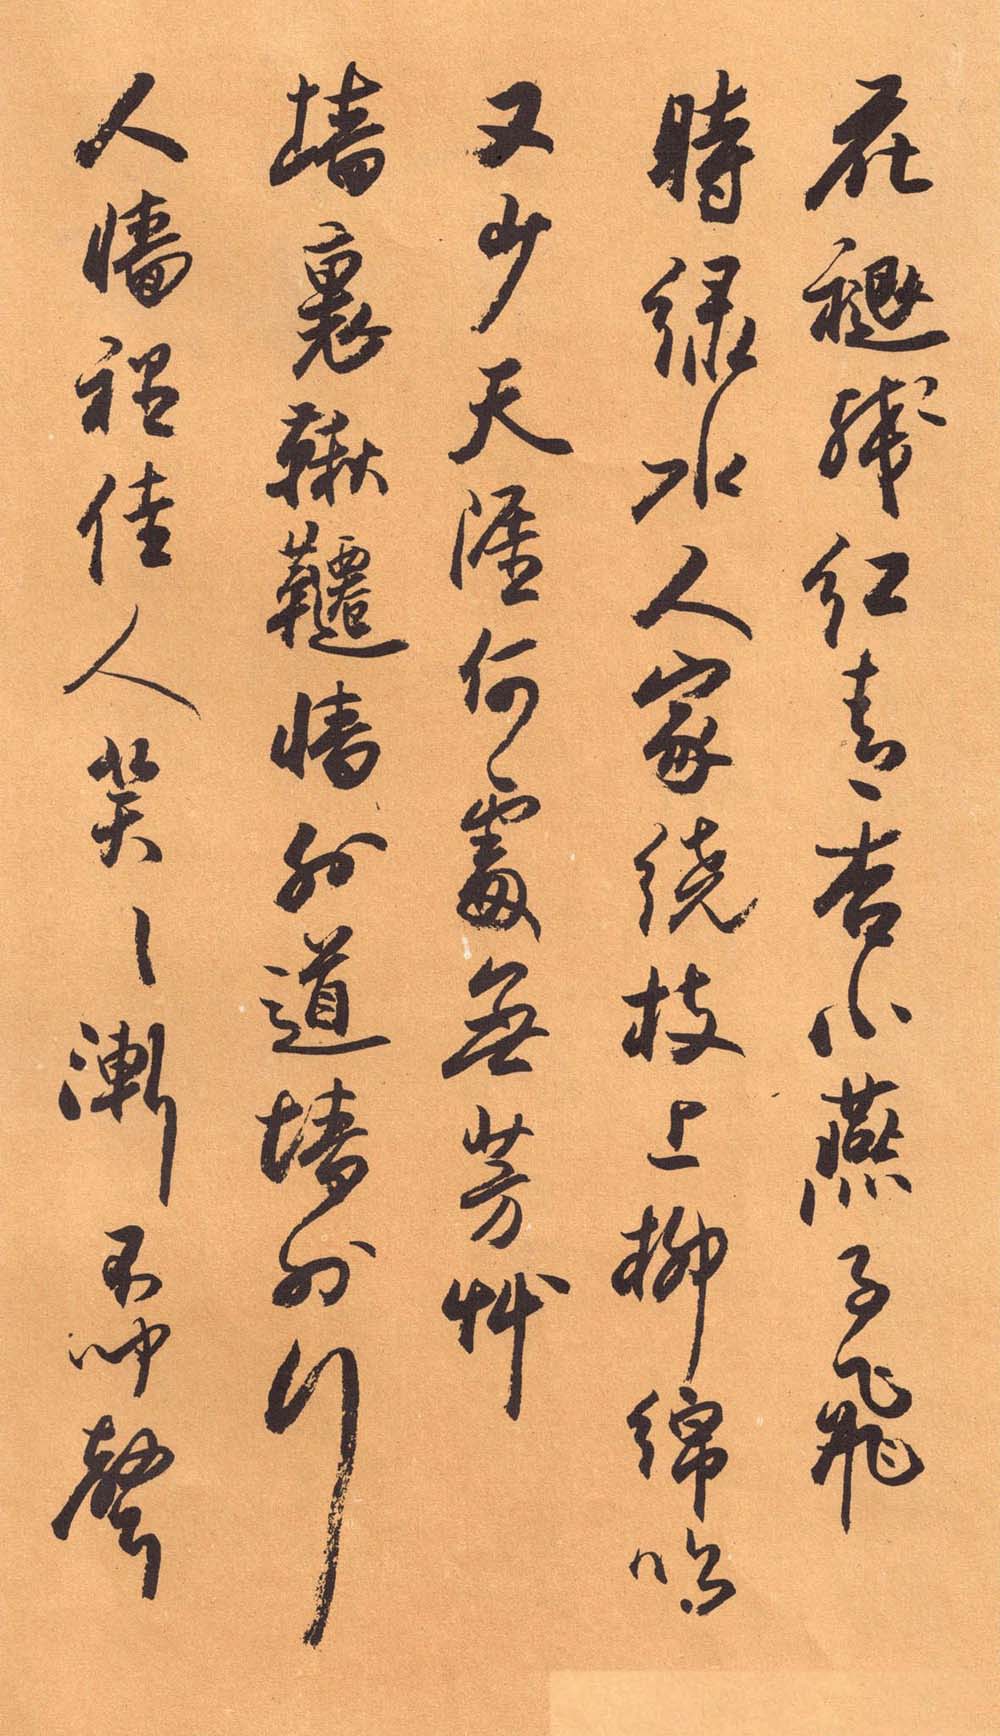 花褪殘紅青杏小燕子飛
時綠水人家繞枝上柳綿吹
又少天涯何處無芳艸
墻裏鞦韆牆外道墻外行
人牆裡佳人笑〻漸不聞聲